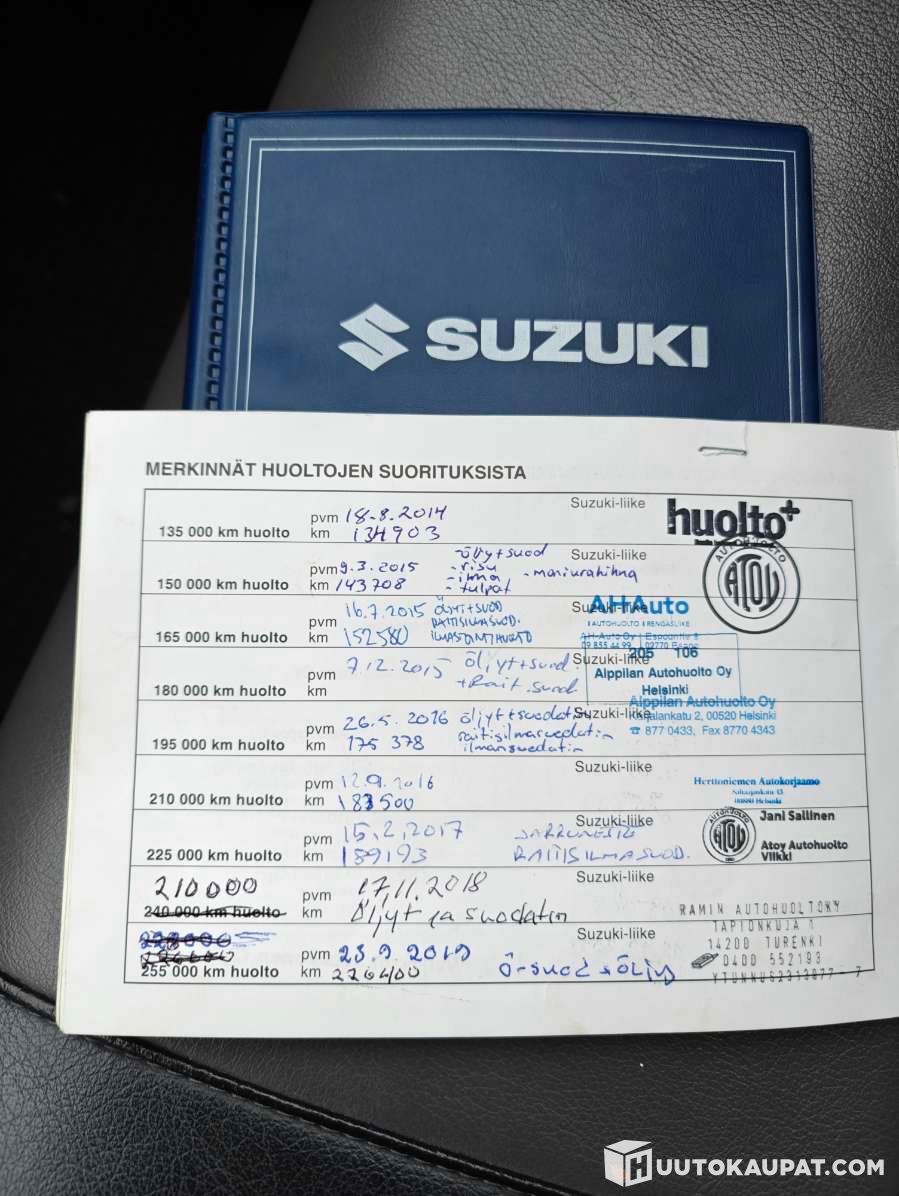 SUZUKI
MERKINNÄT HUOLTOJEN SUORITUKSISTA
135 000 km huolto pvm 18.8.2014 Suzuki-liike huolto+
km 134903
AUTOHUOLTO
ATOY
150 000 km huolto pvm 9.3.2015 Öljyt+suod Suzuki-liike
km 143708 -ilma -moniurahihna
-tulpat
165 000 km huolto pvm 16.7.2015 ÖLJYT+SUOD Suzuki-liike
RAITISILMASUOD.
km 152580 ILMASTOINTIHUOLTO
AHAuto
AUTOHUOLTO RENGASLIIKE
AH-Auto Oy Espoontie
09 855 44 99 02770 Espoo
180 000 km huolto pvm 7.12.2015 öljyt+suod. Suzuki-liike
km +Rait.suod.
205 106
Alppilan Autohuolto Oy
Helsinki
195 000 km huolto pvm 26.5.2016 öljyt+suodatin Suzuki-liike
km 175 378 raitisilmasuodatin
ilmansuodatin
Alppilan Autohuolto Oy
Karjalankatu 2, 00520 Helsinki
☎ 877 0433, Fax 8770 4343
210 000 km huolto pvm 12.9.2016 Suzuki-liike
km 183500
Herttoniemen Autokorjaamo
Helsinki
225 000 km huolto pvm 15.2.2017 JARRUNESTE Suzuki-liike
km 189193 RAITISILMASUOD.
AUTOHUOLTO
ATOY
Jani Sallinen
Atoy Autohuolto
Viikki
210000
240 000 km huolto pvm 17.11.2018 Suzuki-liike
km Öljyt ja suodatin
226400
255 000 km huolto pvm 23.9.2019 Suzuki-liike
km 226400 Ö-suod + öljy
RAMIN AUTOHUOLTO KY
TAPIONKUJA 1
14200 TURENKI
0400 552193
Y TUNNUS2313877-7
HUUTOKAUPAT.COM